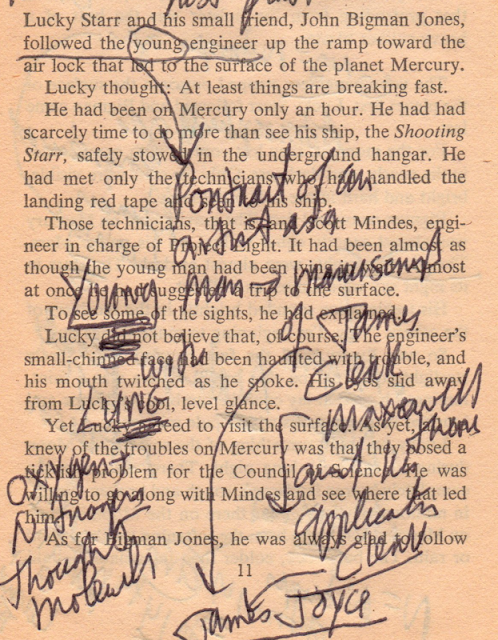 Lucky Starr and his small friend, John Bigman Jones,
followed the young engineer up the ramp toward the
air lock that led to the surface of the planet Mercury.
Lucky thought: At least things are breaking fast.
He had been on Mercury only an hour. He had had
scarcely time to do more than see his ship, the Shooting
Starr, safely stowed in the underground hangar. He
had met only the technicians who had handled the
landing red tape and seen to his ship.
Those technicians, that is, and Scott Mindes, engi-
neer in charge of Project Light. It had been almost as
though the young man had been lying in wait. Almost
at once he had suggested a trip to the surface.
To see some of the sights, he had explained.
Lucky did not believe that, of course. The engineer's
small-chinned face had been haunted with trouble, and
his mouth twitched as he spoke. His eyes slid away
from Lucky's cool, level glance.
Yet Lucky agreed to visit the surface. As yet, all he
knew of the troubles on Mercury was that they posed a
ticklish problem for the Council of Science. He was
willing to go along with Mindes and see where that led
him.
As for Bigman Jones, he was always glad to follow
11
Portrait of an
artist as a
Young man →
of James
Clerk
Maxwell
and his
with
Lung
oxygen
thought
molecules
Clerk
James Joyce